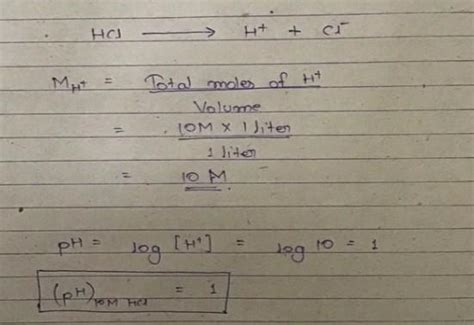 HCl ⟶ H+ + Cl-
MH+ = Total moles of H+
Volume
= 10M × 1 liter
1 liter
= 10 M
pH = log [H+] = log 10 = 1
(pH)10M HCl = 1